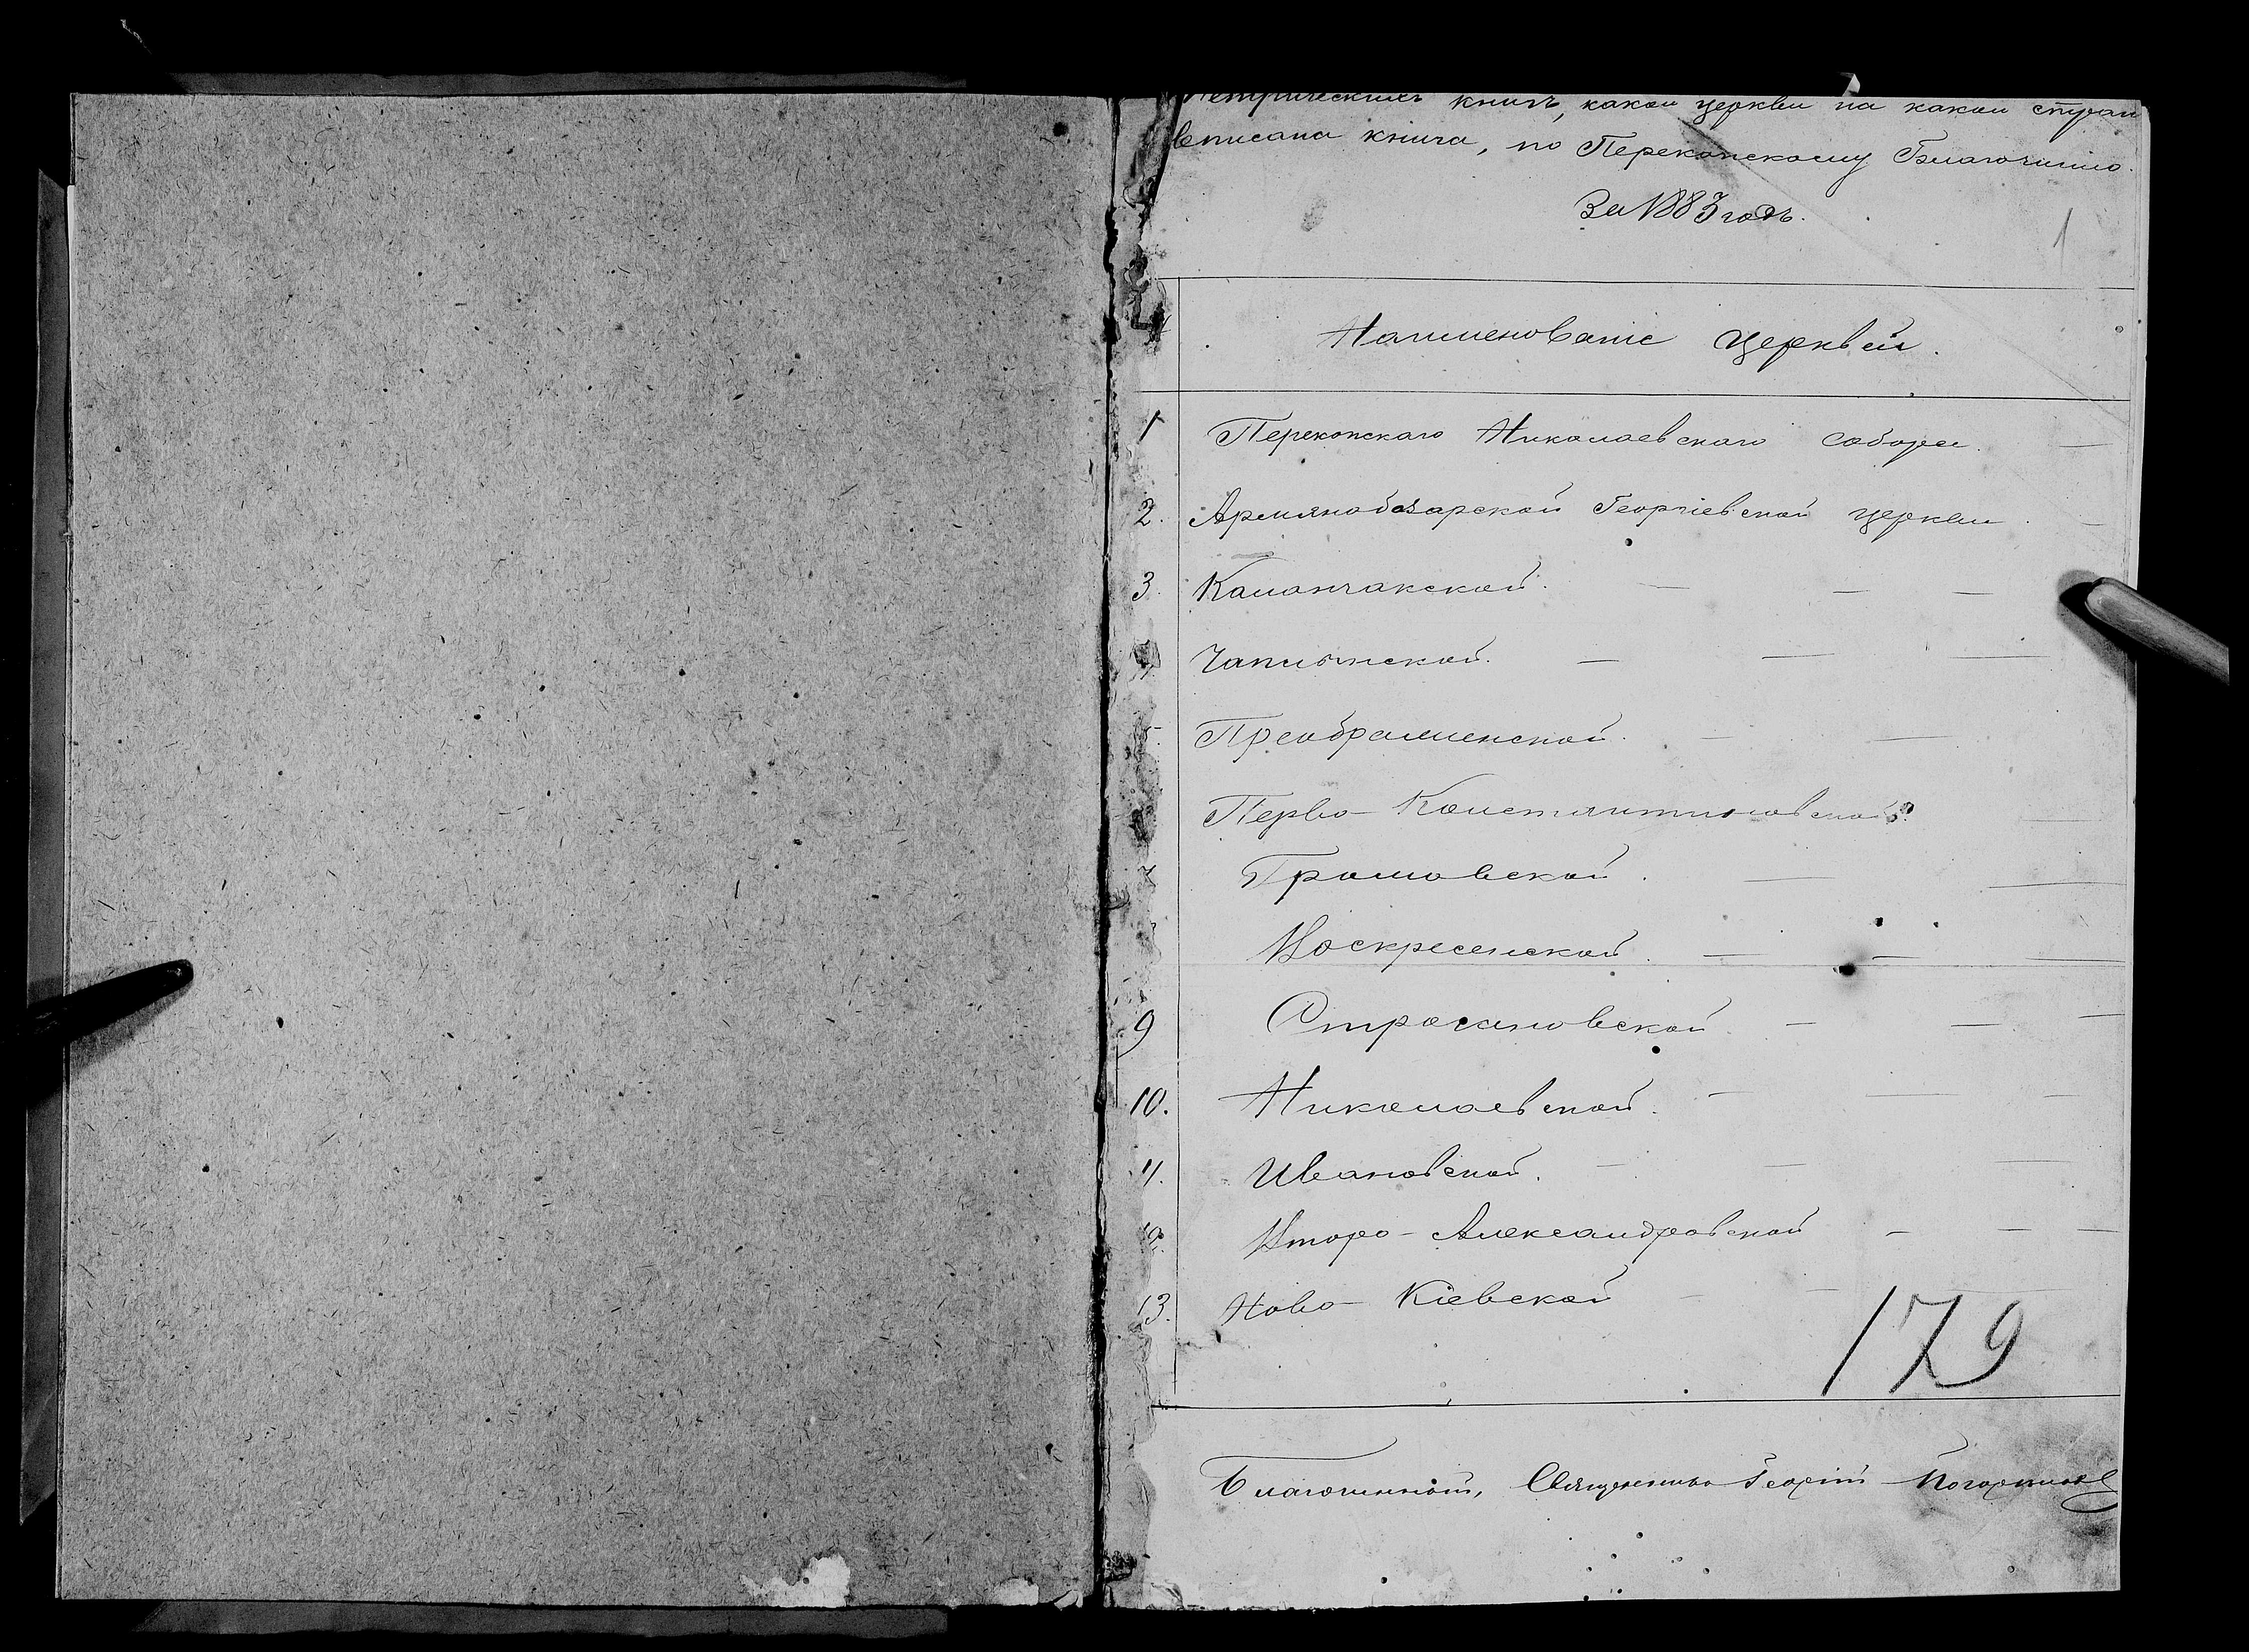 Метрическихъ книгъ, какой церкви на какой стран
вписана книга, по Перекопскому Благочинію.
За 1883 годъ.
1
Наименованіе Церквей.
1 Перекопскаго Николаевскаго собора. —
2. Армянобазарской Георгіевской церкви. —
3. Каланчакской. — — —
4. Чаплынской. — — —
5. Преображенской. — —
Перво-Константиновской. —
7 Громовской. — —
Воскресенской. — — —
9 Строгановской — — —
10. Николаевской. — — —
11. Ивановской. — — —
12. Второ-Александровской — — —
13. Ново-Кіевской — — —
179
Благочинный, Священникъ Георгій